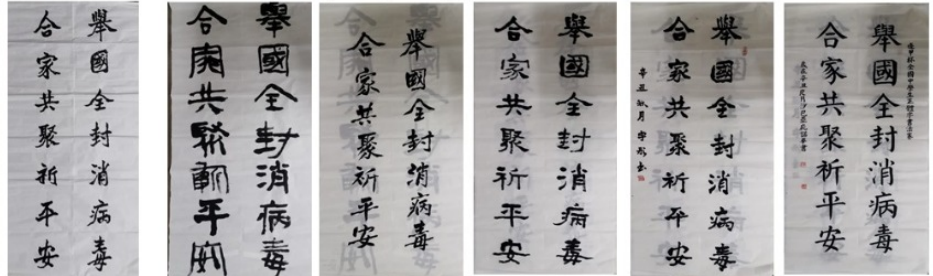 舉國全封消病毒
合家共聚祈平安
舉國全封消病毒
合家共聚祈平安
舉國全封消病毒
合家共聚祈平安
舉國全封消病毒
合家共聚祈平安
舉國全封消病毒
合家共聚祈平安
辛丑 月 書
舉國全封消病毒
合家共聚祈平安
杯全國中學生 書法